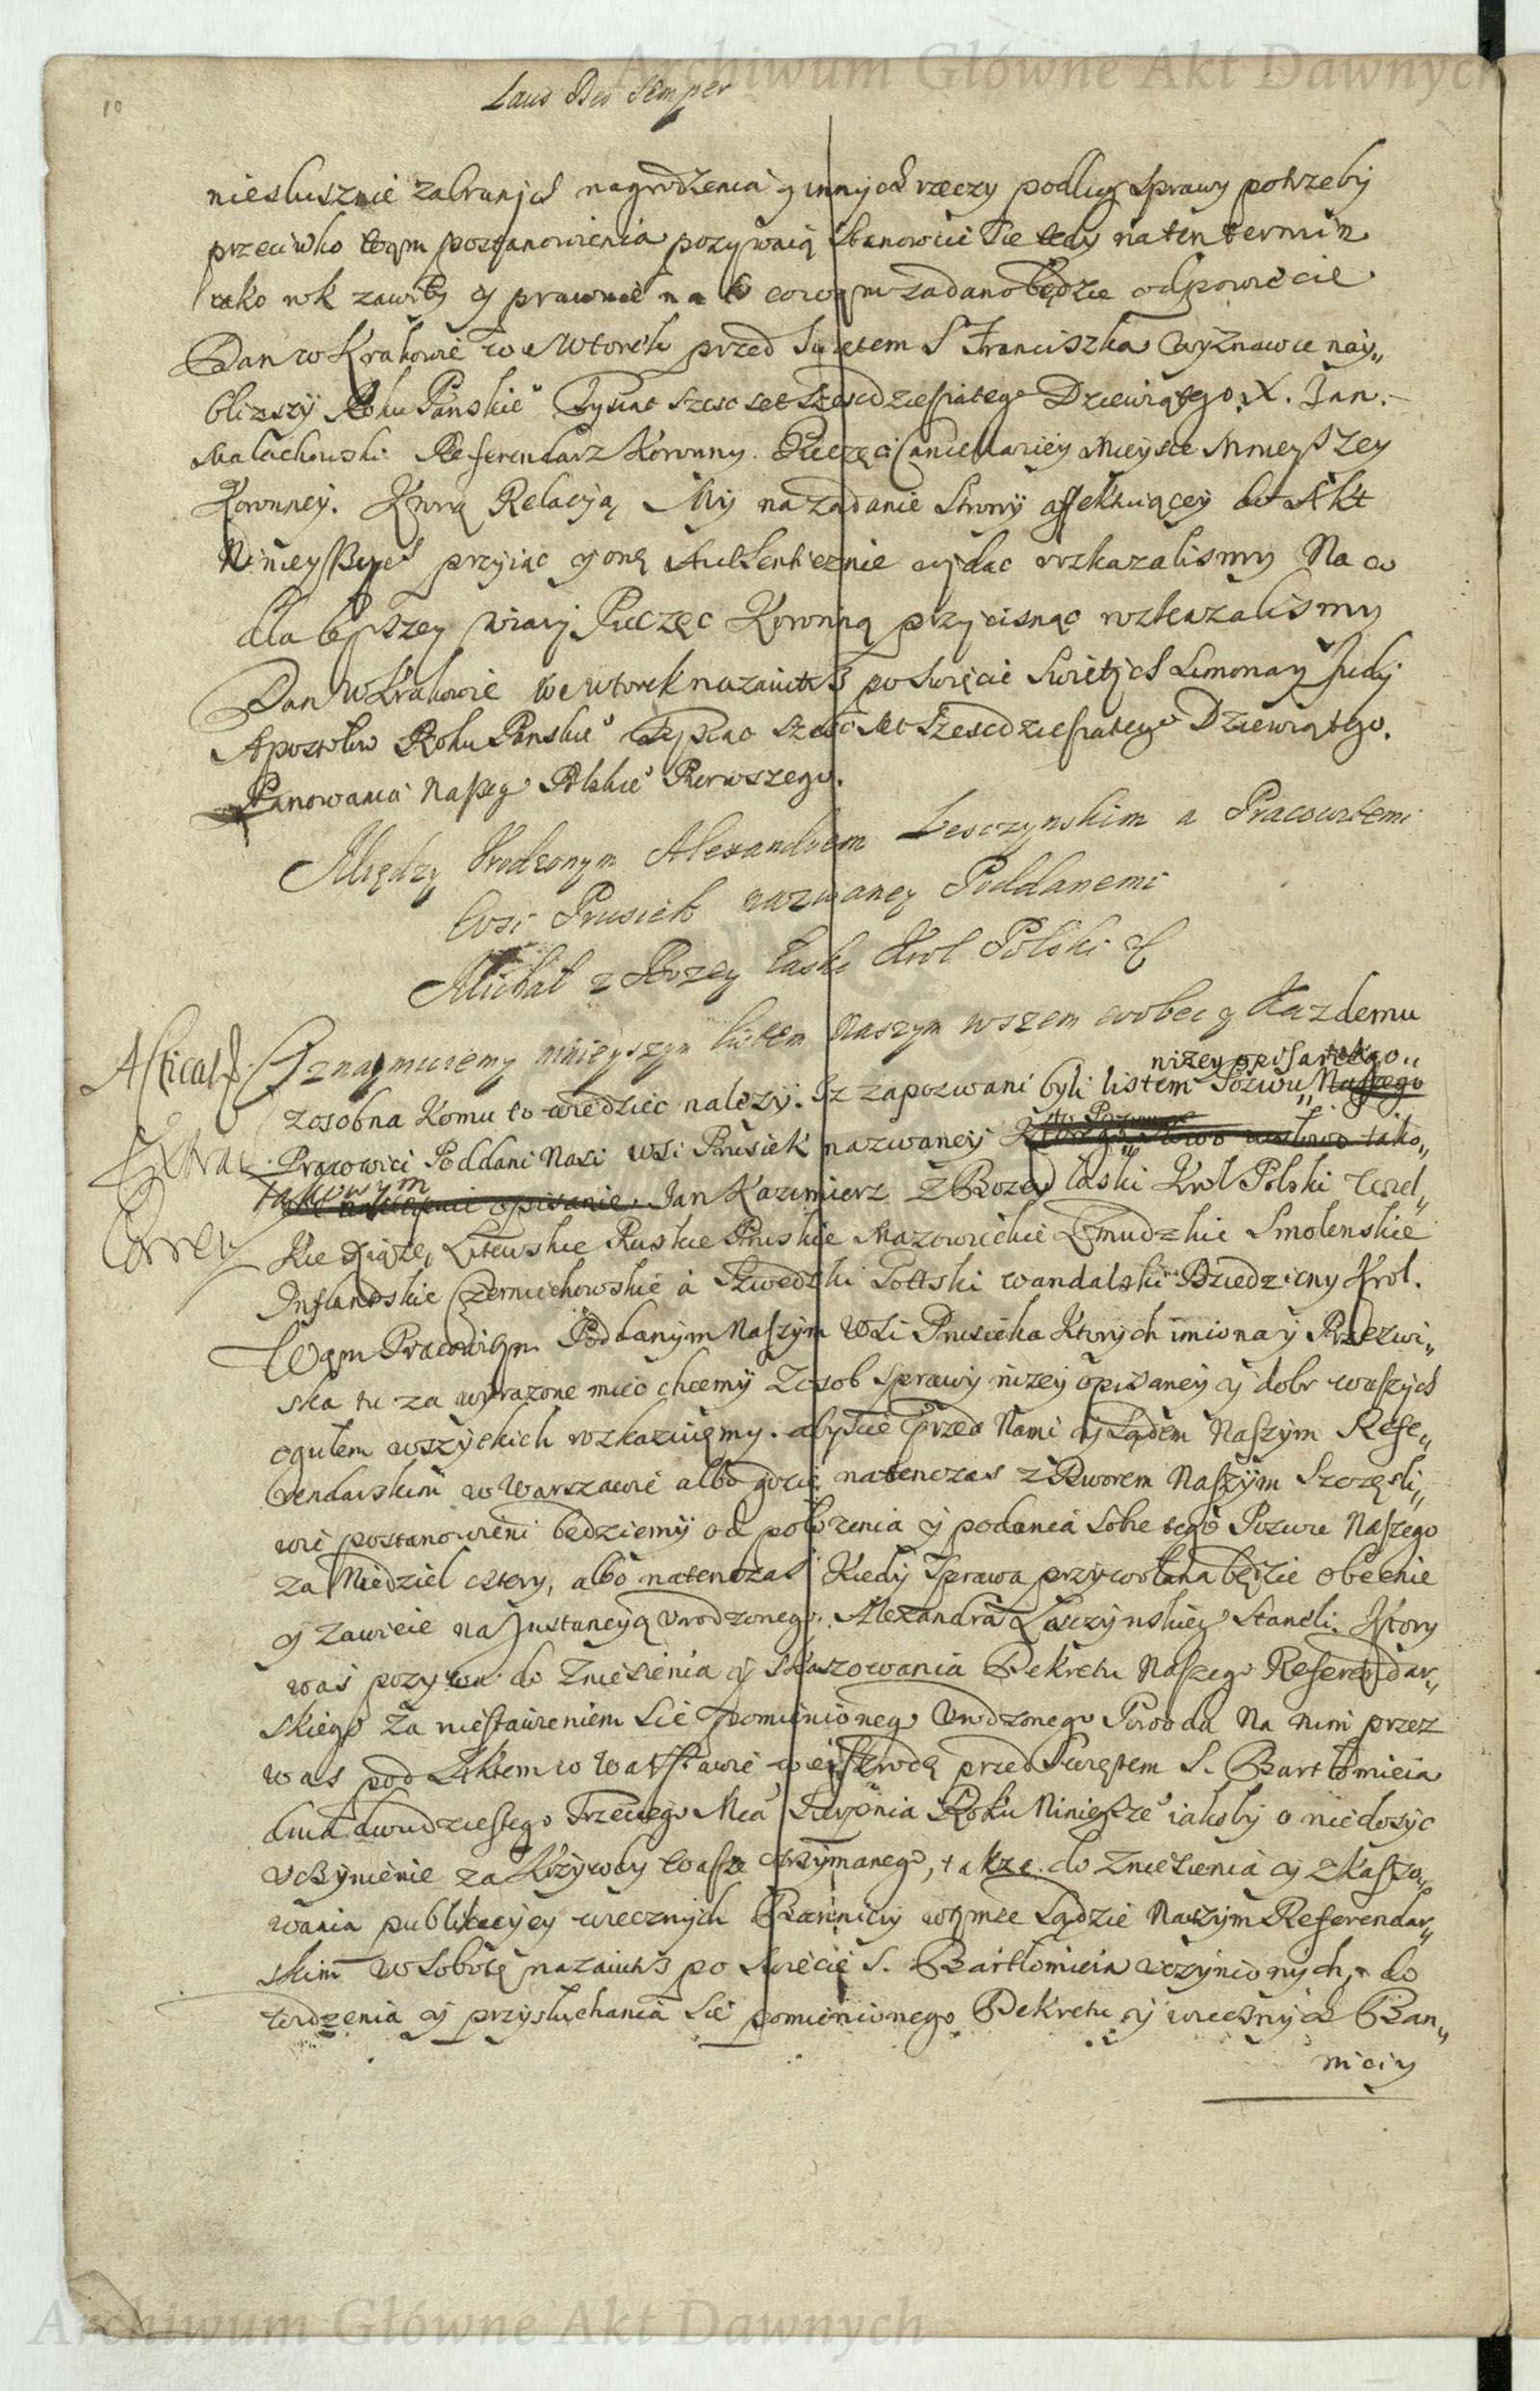 Archiwum Główne Akt Dawnych
10
Laus Deo Semper
niesłusznie zabranych nagrodzenia y innych rzeczy podług sprawy potrzeby
przeciwko wąm postanowienia pozywaią Stanowcie sie tedy na ten termin
iako rok zawity y prawnie na to co wąm zadano będzie odpowiecie
Dan w Krakowie we Wtorek przed Swiętem S Franciszka Wyznawce nay„
blizszÿ Roku Panskie° Tysiąc szesc set szescdziesiątego Dziewiątego. X. Jan.
Małachowski Referendarz Koronny. Pieczęci Cancellariey Mieysce Mnieyszey
Koronney. Ktorą Relacyją My na ządanie Strony affektuiącey do Akt
Ninieyszych przyiąc y oną Authentieznie wydac rozkazalismy Na co
dla lepszey wiary Pieczęc Koronną przycisnąc rozkazalismy
Dan w Krakowie we Wtorek nazaiutrz po Swięcie Swiętych Simona y Judy
Apostołow Roku Panskie° Tysiąc szesc set szescdziesiątego Dziewiątego.
Panowania Naszeg° Polskie° Pierwszego.
Między Urodzonym Alexandrem Lesczynskim a Pracowitemi
Wsi Prusiek nazwaney Poddanemi
Michał z Bozey Łaski Krol Polski &
Oznaymuiemy ninieyszym listem Naszym wszem wobec y Kazdemu
nizey opisanego„
zosobna Komu to wiedziec nalezy. Iz zapozwani byli listem Pozwu„ Naszego
Extrac
Pracowici Poddani Nasi wsi Prusiek nazwaney
takowym
opisanie. Jan Kazimierz z Bozey łaski Krol Polski Wiel„
Correx
kie Xiąze, Litewskie Ruskie Pruskie Mazowieckie Zmudzkie Smolenskie
Inflandskie Czerniechowskie á Szwedzki Gottski wandalski Dziedziczny Krol.
Wąm Pracowitym Poddanym Naszym Wsi Prusieka Ktorych imiona y Przezwi„
ska tu za wyrazone miec chcemy Zosob sprawy nizey opisaney y dobr waszych
ogułem wszyckich rozkazuięmy. abyscie przed Nami y Sądem Naszym Refe„
rendarskim w Warszawie albo gdzie natenczas z Dworem Naszÿm Szczęsli„
wie postanowieni będziemy od połozenia y podania sobie tego Pozwu Naszego
za Niedziel cztery, albo natenczas Kiedy Sprawa przywołana będzie obecnie
y Zawicie na Instancyą Urodzonego Alexandra Lesczynskieg° Staneli. Ktory
was pozywa do Zniesienia y skaszowania Dekretu Naszego Referendar„
skiego za niestawieniem sie pomienioneg° Urodzonego Powoda Na nim przez
was pod Aktem w Warszawie we Szrodą przed Swiętem S. Bartłomieia
dnia dwudziestego Trzeciego Mca Sierpnia Roku Ninieysze° iakoby o niedosyc
uczynienie za Krzywdy wasze otrzymanego, takze do Zniesienia y skaszo„
wania publikacyey wiecznych Bannicij wtymze Sądzie Naszym Referendar„
skim w Sobotę nazaiutrz po Swięcie S. Bartłomieia uczynionych, do
widzenia y przysłuchania sie pomienionego Dekretu y wiecznych Ban„
nicij
Archiwum Główne Akt Dawnych